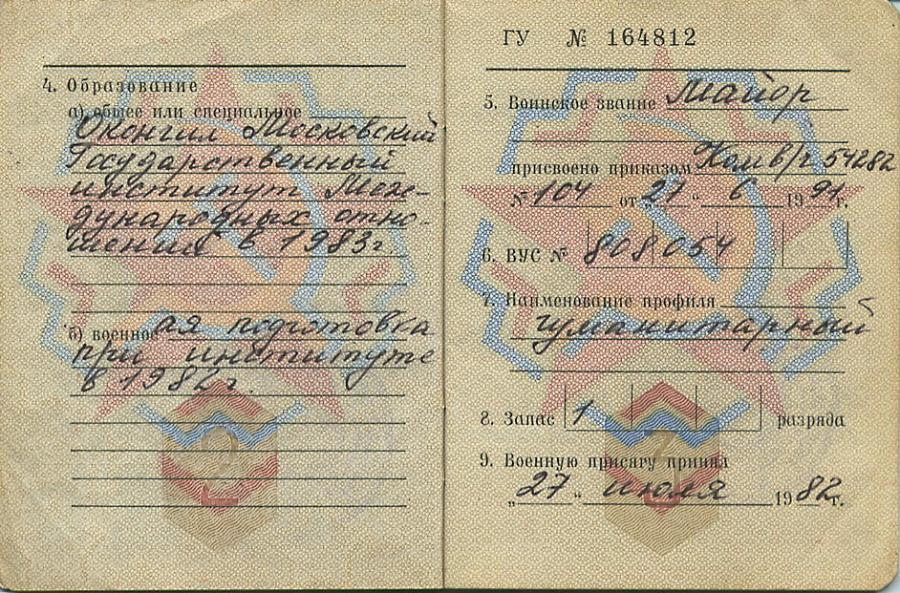 4. Образование
а) общее или специальное
Окончил Московский
Государственный
институт Меж-
дународных отно-
шений в 1983г.
б) военное ая подготовка
при институте
в 1982г.
ГУ № 164812
5. Воинское звание Майор
присвоено приказом Ком в/ч 54282
№ 104 от 21 " 6 1991г.
6. ВУС № 808054
7. Наименование профиля
гуманитарный
8. Запас 1 разряда
9. Военную присягу принял
„27“ июля 1982г.
2